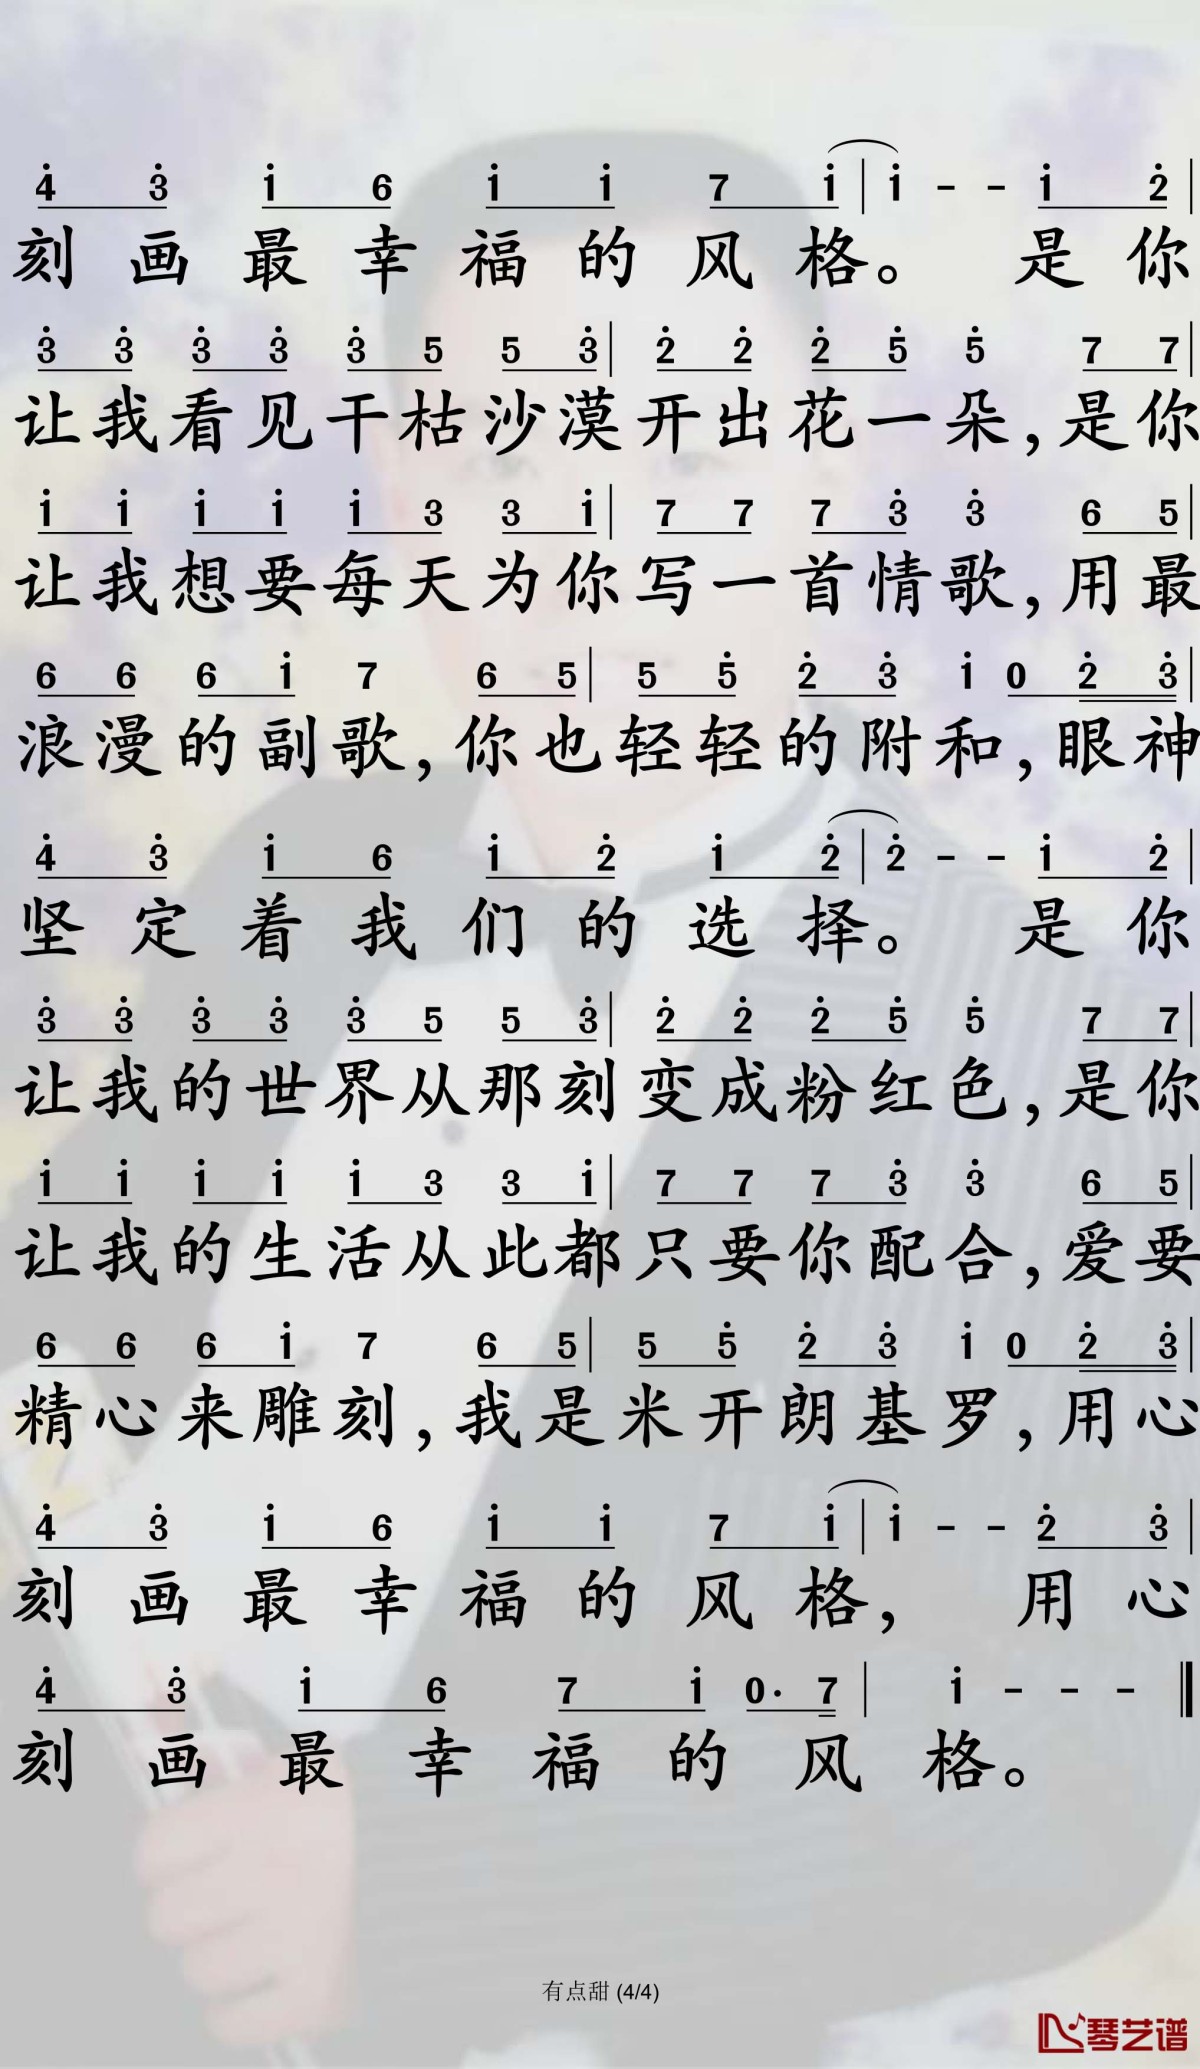 4̇ 3̇ 1̇ 6 1̇ 1̇ 7 1̇ | 1̇ - - 1̇ 2̇ |
刻画最幸福的风格。 是你
3̇ 3̇ 3̇ 3̇ 3̇ 5 5 3̇ | 2̇ 2̇ 2̇ 5̇ 5̇ 7 7 |
让我看见干枯沙漠开出花一朵,是你
1̇ 1̇ 1̇ 1̇ 1̇ 3 3 1̇ | 7 7 7 3̇ 3̇ 6 5 |
让我想要每天为你写一首情歌,用最
6 6 6 1̇ 7 6 5 | 5 5̇ 2̇ 3̇ 1̇ 0 2̇ 3̇ |
浪漫的副歌,你也轻轻的附和,眼神
4̇ 3̇ 1̇ 6 1̇ 2̇ 1̇ 2̇ | 2̇ - - 1̇ 2̇ |
坚定着我们的选择。 是你
3̇ 3̇ 3̇ 3̇ 3̇ 5 5 3̇ | 2̇ 2̇ 2̇ 5̇ 5̇ 7 7 |
让我的世界从那刻变成粉红色,是你
1̇ 1̇ 1̇ 1̇ 1̇ 3 3 1̇ | 7 7 7 3̇ 3̇ 6 5 |
让我的生活从此都只要你配合,爱要
6 6 6 1̇ 7 6 5 | 5 5̇ 2̇ 3̇ 1̇ 0 2̇ 3̇ |
精心来雕刻,我是米开朗基罗,用心
4̇ 3̇ 1̇ 6 1̇ 1̇ 7 1̇ | 1̇ - - 2̇ 3̇ |
刻画最幸福的风格, 用心
4̇ 3̇ 1̇ 6 7 1̇ 0· 7 | 1̇ - - - ‖
刻画最幸福的风格。
有点甜 (4/4)
琴艺谱